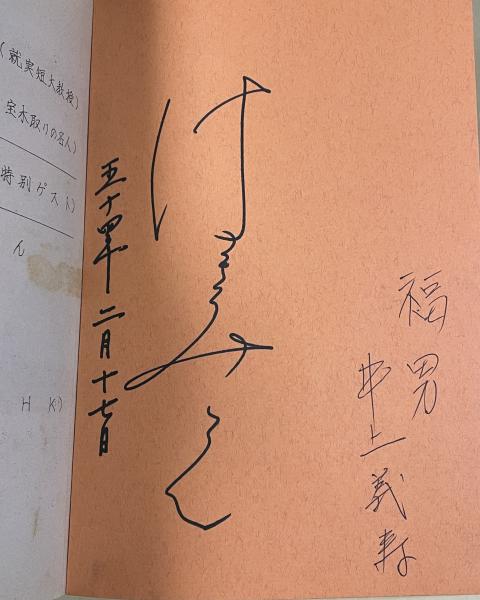 福男
井上義
五十四年 二月十七日
(就実短大教授)
宝木取りの名人)
特別ゲスト)
ん
HK)